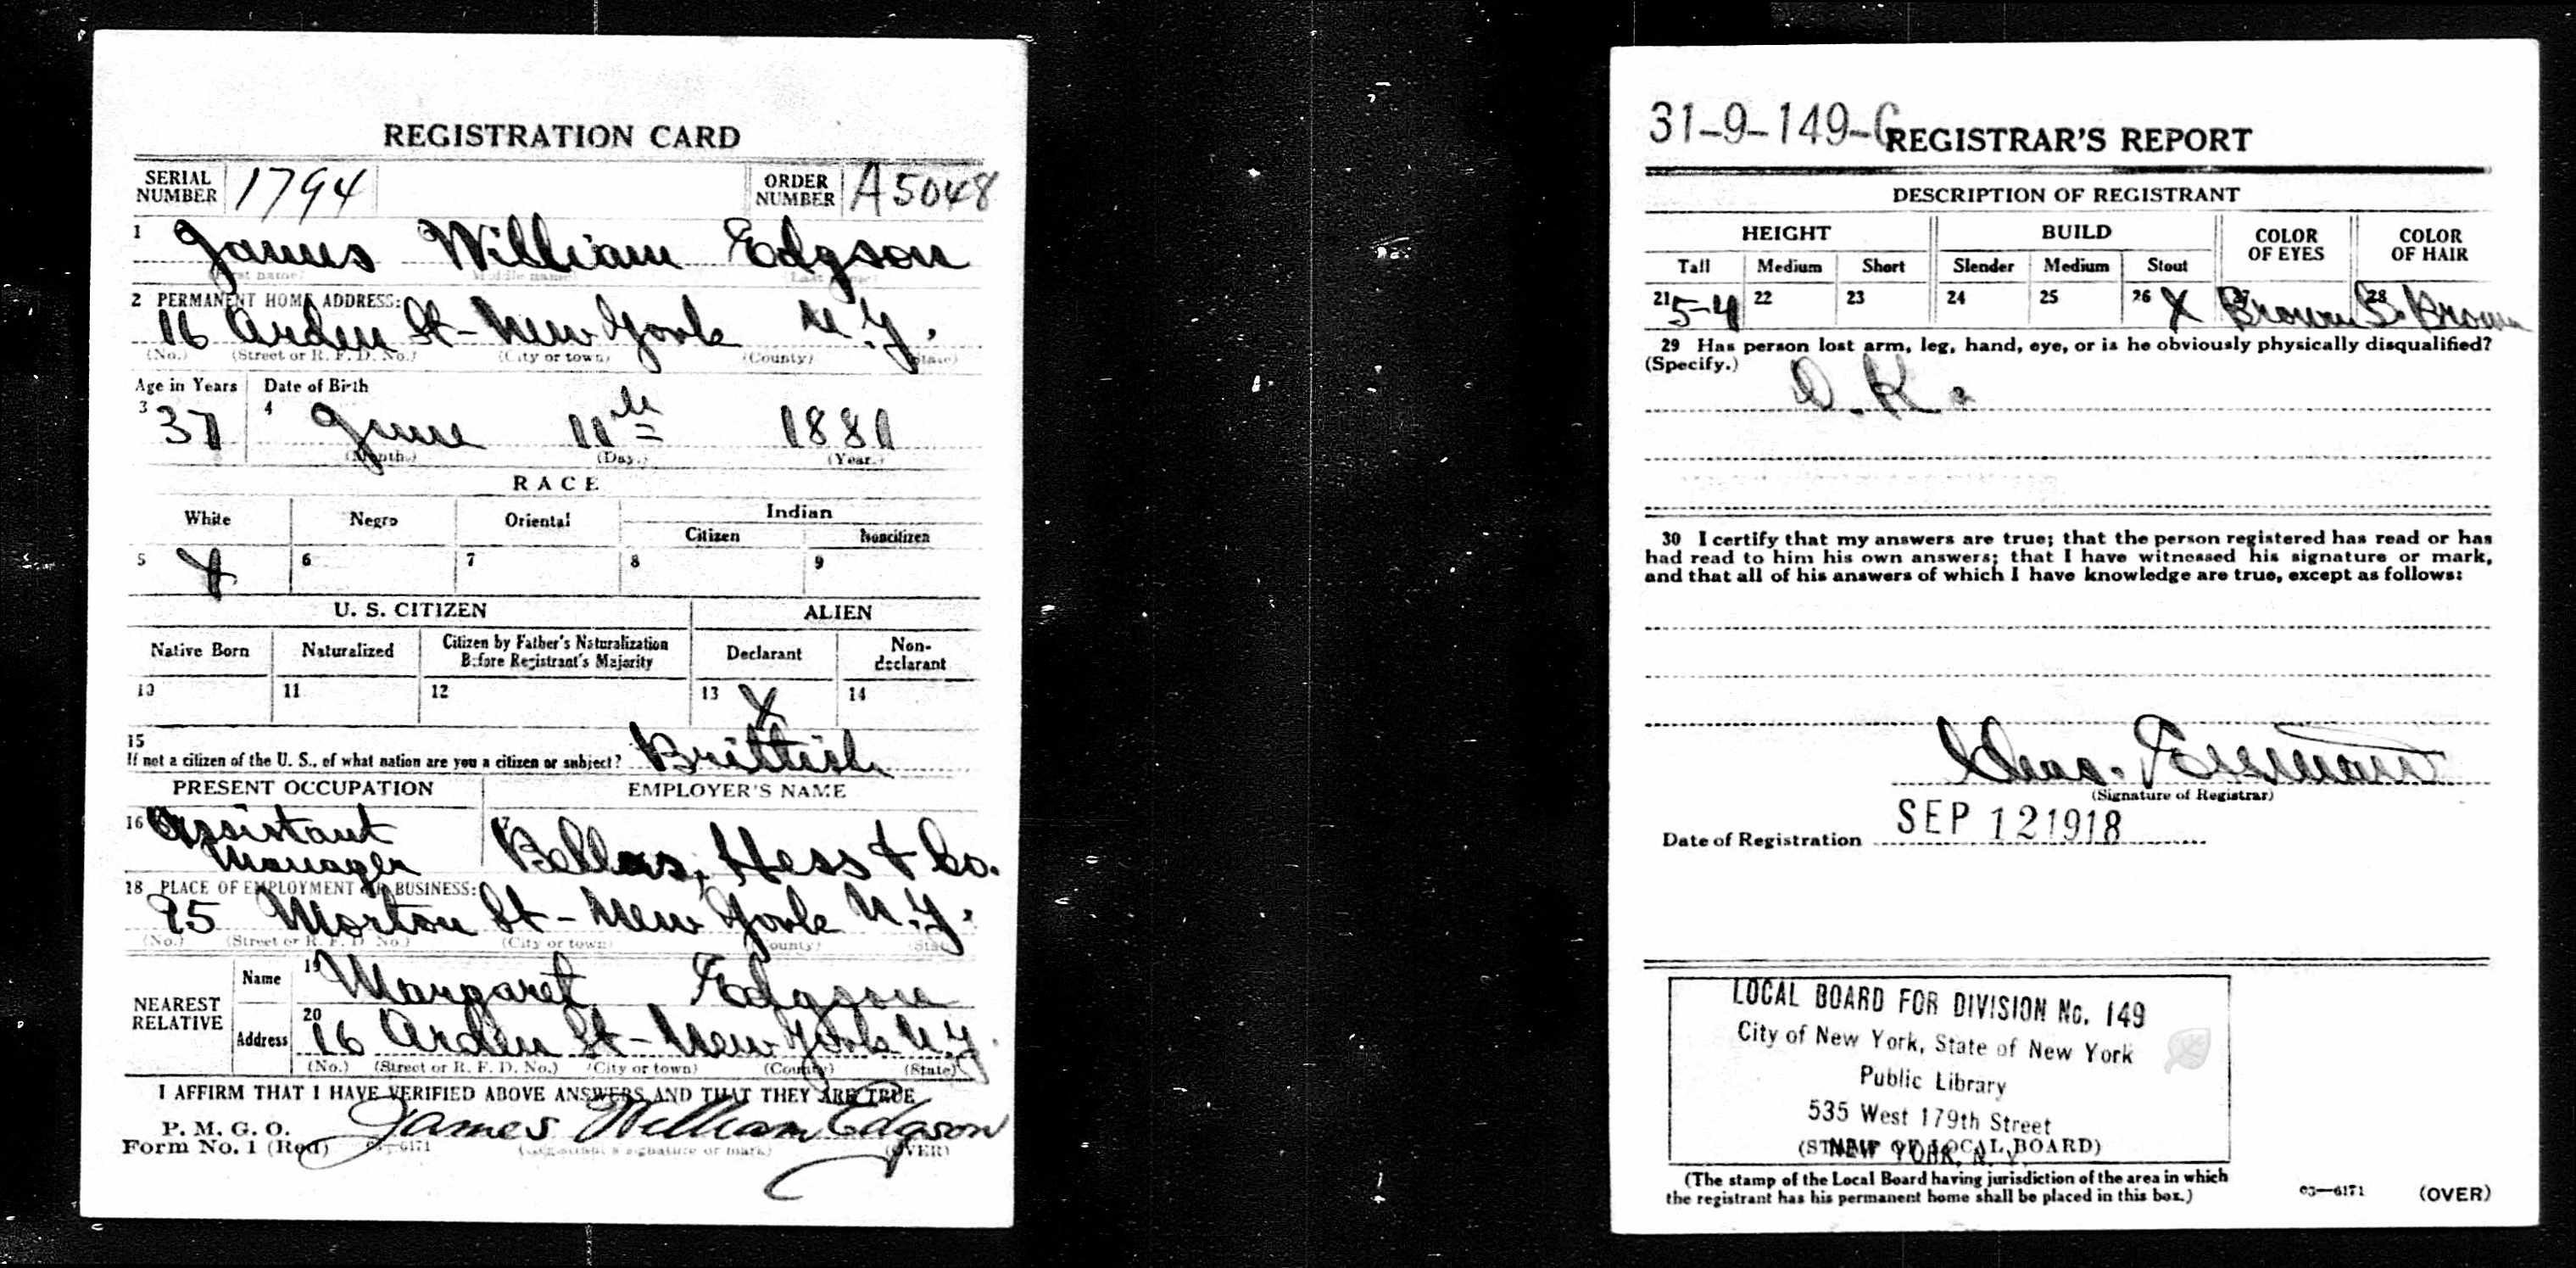 REGISTRATION CARD
SERIAL NUMBER 1794 ORDER NUMBER A5048
1 James William Edgson
(First name) (Middle name) (Last name)
2 PERMANENT HOME ADDRESS:
16 Arden St - New York N.Y.
(No.) (Street or R. F. D. No.) (City or town) (County) (State)
Age in Years Date of Birth
3 37 4 June 11th 1881
(Month.) (Day.) (Year.)
RACE
White Negro Oriental Indian
Citizen Noncitizen
5 X 6 7 8 9
U. S. CITIZEN ALIEN
Native Born Naturalized Citizen by Father's Naturalization Before Registrant's Majority Declarant Non-declarant
10 11 12 13 X 14
15
If not a citizen of the U. S., of what nation are you a citizen or subject? Brittish
PRESENT OCCUPATION EMPLOYER'S NAME
16 Assistant Manager 17 Bellas, Hess & Co.
18 PLACE OF EMPLOYMENT OR BUSINESS:
95 Morton St - New York N.Y.
(No.) (Street or R. F. D. No.) (City or town) (County) (State)
NEAREST RELATIVE
Name 19 Margaret Edgson
Address 20 16 Arden St - New York N.Y.
(No.) (Street or R. F. D. No.) (City or town) (County) (State)
I AFFIRM THAT I HAVE VERIFIED ABOVE ANSWERS AND THAT THEY ARE TRUE
P. M. G. O.
Form No. 1 (Red) 03—6171 James William Edgson
(Registrant's signature or mark) (OVER)
31-9-149-C REGISTRAR'S REPORT
DESCRIPTION OF REGISTRANT
HEIGHT BUILD COLOR OF EYES COLOR OF HAIR
Tall Medium Short Slender Medium Stout
21 5-4 22 23 24 25 26 X 27 Brown 28 Brown
29 Has person lost arm, leg, hand, eye, or is he obviously physically disqualified?
(Specify.) O.K.
30 I certify that my answers are true; that the person registered has read or has
had read to him his own answers; that I have witnessed his signature or mark,
and that all of his answers of which I have knowledge are true, except as follows:
Chas.
(Signature of Registrar)
Date of Registration SEP 12 1918
LOCAL BOARD FOR DIVISION No. 149
City of New York, State of New York
Public Library
535 West 179th Street
NEW YORK, N. Y.
(STAMP OF LOCAL BOARD)
(The stamp of the Local Board having jurisdiction of the area in which
the registrant has his permanent home shall be placed in this box.)
03—6171 (OVER)